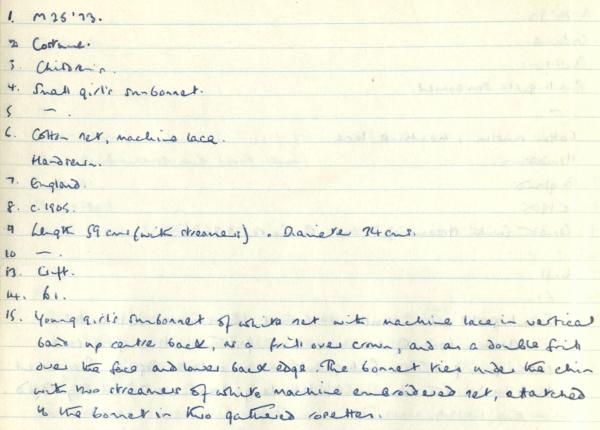 1. M25'73.
2 Costume.
3. Children's.
4. Small girl's sunbonnet.
5 -.
6. Cotton net, machine lace.
Handsewn.
7. England.
8. c.1905.
9 Length 59 cms (with streamers). Diameter 34 cms.
10 -.
13. Gift.
14. b1.
15. Young girl's sunbonnet of white net with machine lace in vertical
band up centre back, as a frill over crown, and as a double frill
over the face and lower back edge. The bonnet ties under the chin
with two streamers of white machine embroidered net, attached
to the bonnet in two gathered rosettes.